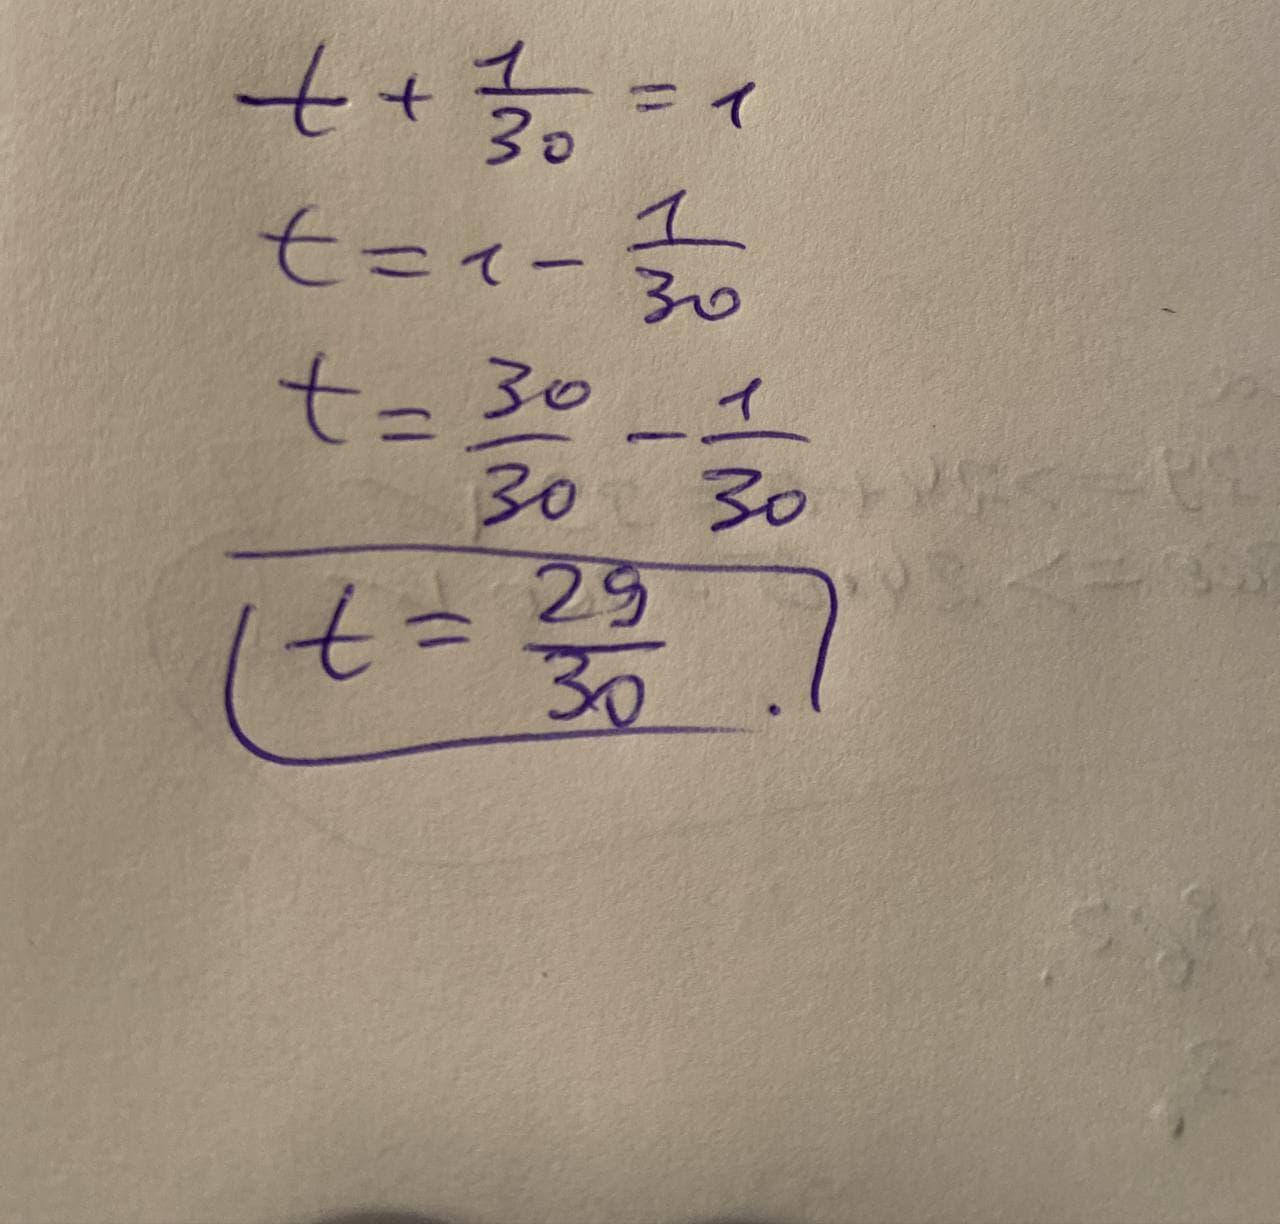 t + 1/30 = 1
t = 1 - 1/30
t = 30/30 - 1/30
t = 29/30 .